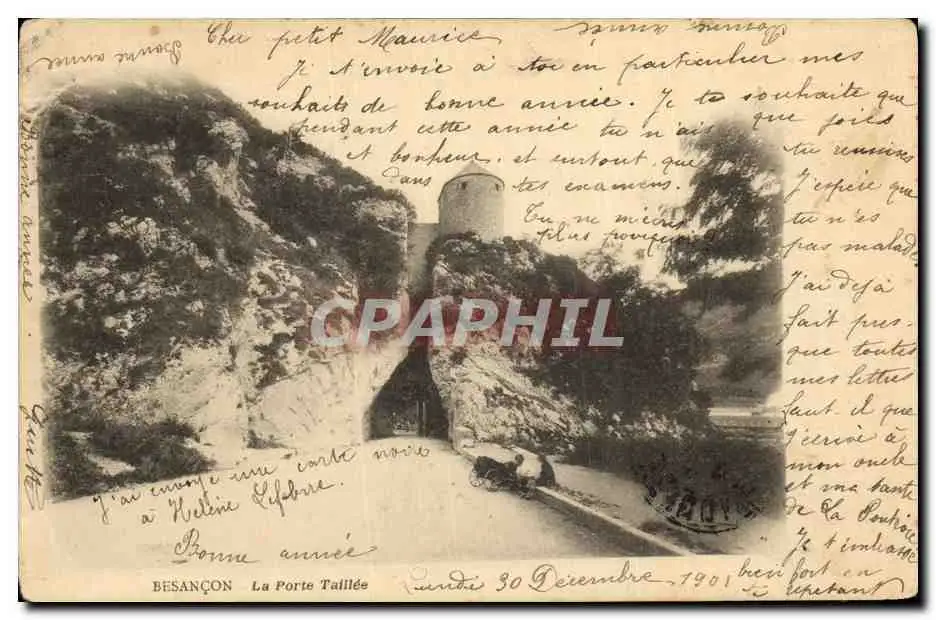 Bonne année
Cher petit Maurice
Bonne année
Je t'envoie à toi en particulier mes
souhaits de bonne année. Je te souhaite que
pendant cette année tu n'ais que joies
et bonheur et surtout que tu reussisses
dans tes examens. J'espère que
Tu ne m'écris tu n'es
plus pas malade.
J'ai deja
fait pres-
que toutes
mes lettres
faut-il que
j'ecrive à
mon oncle
et ma tante
de La
Je t'embrasse
bien fort en
te repetant
Bonne année
CPARAMA PHIL
J'ai envoyé une carte noire
à Helène Lefebvre.
Bonne année
BESANÇON La Porte Taillée
Lundi 30 Décembre 1901